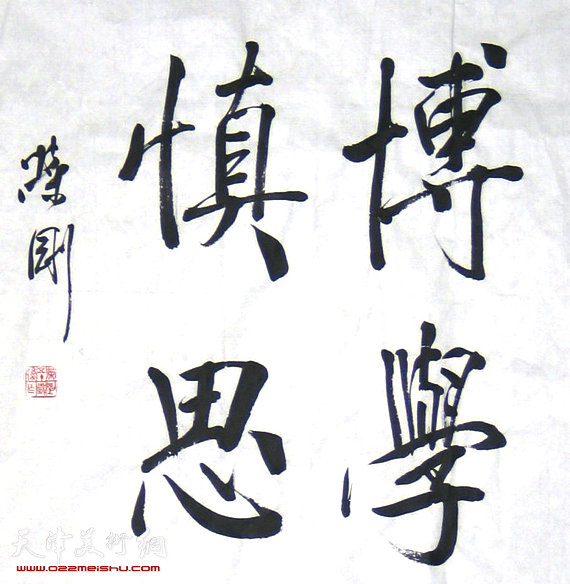 博學
慎思
滎剛
天津美術網
www.022meishu.com